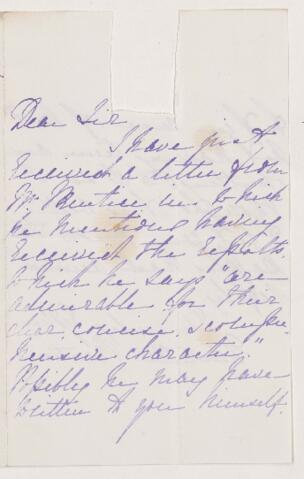 Dear Sir
I have just
received a letter from
Mr. Prentice in which
he mentions having
received the Reports,
which he says "are
admirable for their
clear, concise, & compre-
hensive character."
Possibly he may have
written to you himself.